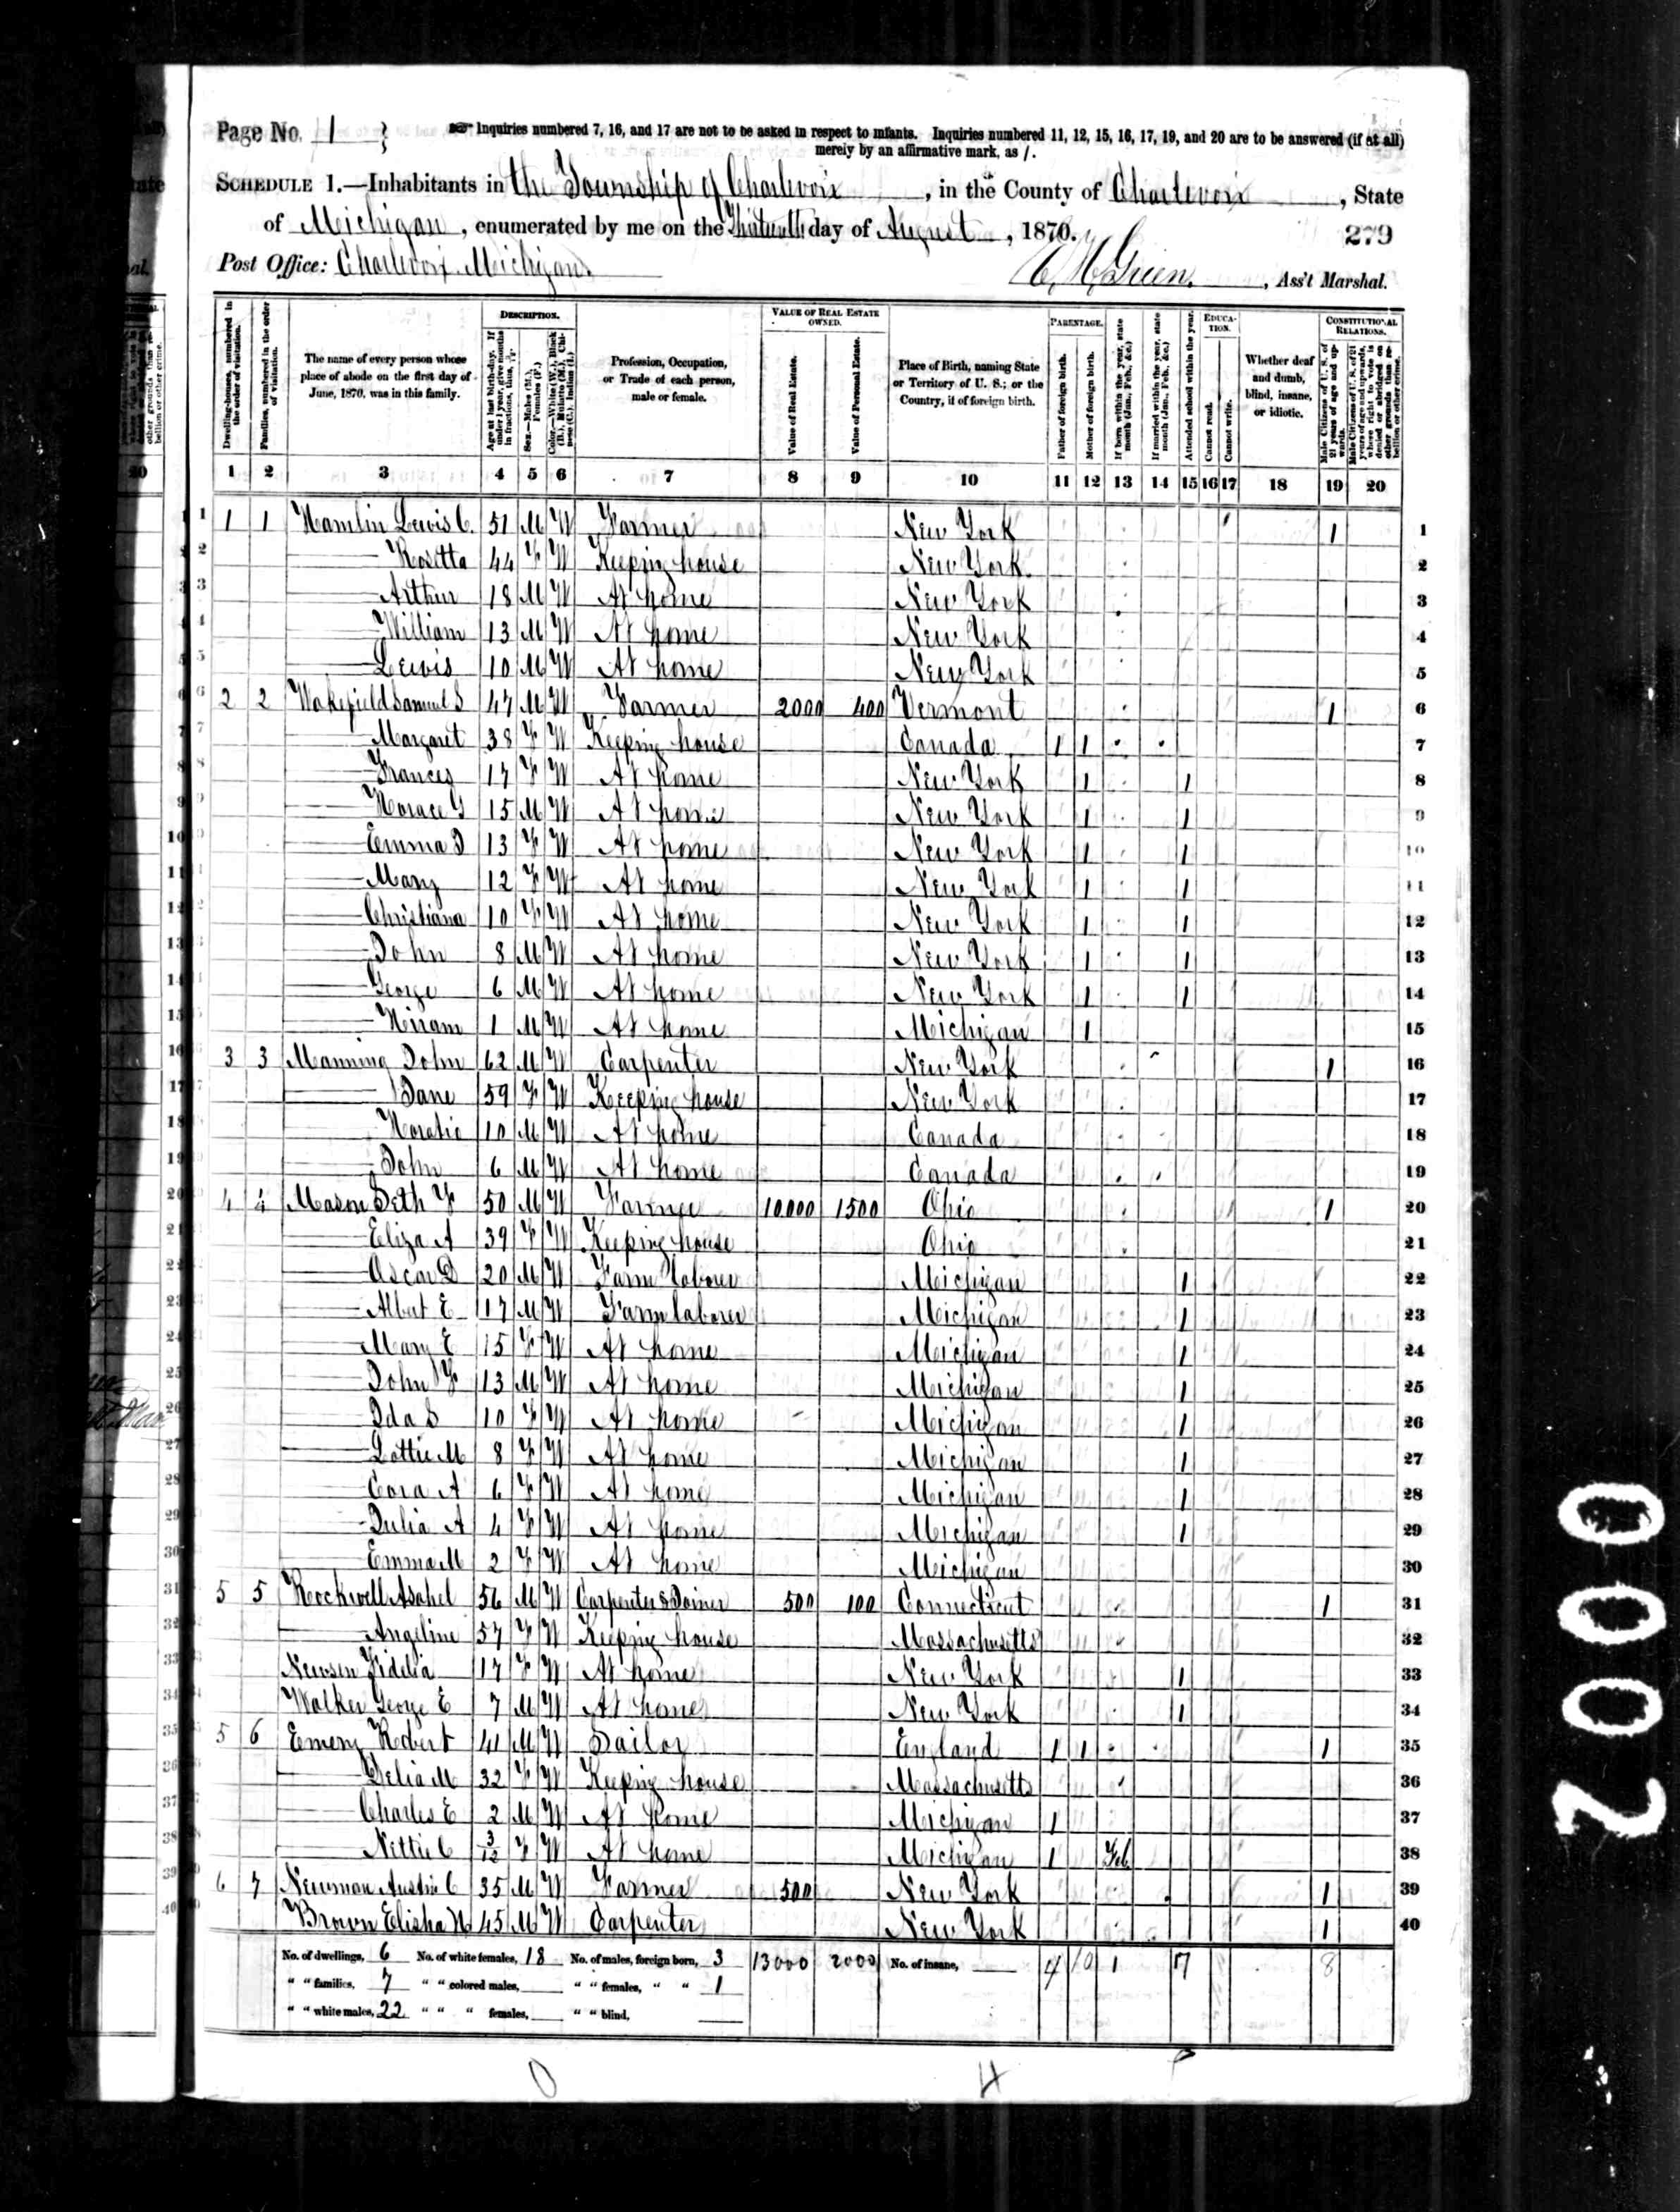 Page No. 1
Inquiries numbered 7, 16, and 17 are not to be asked in respect to infants. Inquiries numbered 11, 12, 15, 16, 17, 19, and 20 are to be answered (if at all)
merely by an affirmative mark, as /.
SCHEDULE 1.—Inhabitants in the Township of Charlevoix, in the County of Charlevoix, State
of Michigan, enumerated by me on the day of August, 1870.
279
Post Office: Charlevoix Michigan
Green, Ass't Marshal.
DESCRIPTION.
VALUE OF REAL ESTATE OWNED.
PARENTAGE.
EDUCATION.
CONSTITUTIONAL RELATIONS.
Dwelling-houses, numbered in the order of visitation.
Families, numbered in the order of visitation.
The name of every person whose place of abode on the first day of June, 1870, was in this family.
Age at last birth-day. If under 1 year, give months in fractions, thus, 3/12.
Sex.—Males (M.), Females (F.)
Color.—White (W.), Black (B.), Mulatto (M.), Chinese (C.), Indian (I.)
Profession, Occupation, or Trade of each person, male or female.
Value of Real Estate.
Value of Personal Estate.
Place of Birth, naming State or Territory of U. S.; or the Country, if of foreign birth.
Father of foreign birth.
Mother of foreign birth.
If born within the year, state month (Jan., Feb., &c.)
If married within the year, state month (Jan., Feb., &c.)
Attended school within the year.
Cannot read.
Cannot write.
Whether deaf and dumb, blind, insane, or idiotic.
Male Citizens of U. S. of 21 years of age and upwards.
Male Citizens of U. S. of 21 years of age and upwards, where right to vote is denied or abridged on other grounds than rebellion or other crime.
1 2 3 4 5 6 7 8 9 10 11 12 13 14 15 16 17 18 19 20
1 1 1 Hamlin Lewis C. 51 M W Farmer New York 1 1
2 Rosetta 44 F W Keeping house New York 2
3 Arthur 18 M W At home New York 3
4 William 13 M W At home New York 4
5 Lewis 10 M W At home New York 5
6 2 2 Wakefield Samuel S 47 M W Farmer 2000 400 Vermont 1 6
7 Margaret 38 F W Keeping house Canada 1 1 7
8 Frances 17 F W At home New York 1 1 8
9 Horace G 15 M W At home New York 1 1 9
10 Emma J 13 F W At home New York 1 1 10
11 Mary 12 F W At home New York 1 1 11
12 Christiana 10 F W At home New York 1 1 12
13 John 8 M W At home New York 1 1 13
14 George 6 M W At home New York 1 1 14
15 Hiram 1 M W At home Michigan 1 15
16 3 3 Manning John 62 M W Carpenter New York 1 16
17 Jane 59 F W Keeping house New York 17
18 Horatio 10 M W At home Canada 18
19 John 6 M W At home Canada 19
20 4 4 Mason Seth F 50 M W Farmer 10000 1500 Ohio 1 20
21 Eliza A 39 F W Keeping house Ohio 21
22 Oscar D 20 M W Farm laborer Michigan 1 22
23 Albert E 17 M W Farm laborer Michigan 1 23
24 Mary E 15 F W At home Michigan 1 24
25 John F 13 M W At home Michigan 1 25
26 Ida S 10 F W At home Michigan 1 26
27 Lottie M 8 F W At home Michigan 1 27
28 Cora A 6 F W At home Michigan 1 28
29 Julia A 4 F W At home Michigan 1 29
30 Emma M 2 F W At home Michigan 30
31 5 5 Rockwell Asahel 56 M W Carpenter & Joiner 500 100 Connecticut 1 31
32 Angeline 57 F W Keeping house Massachusetts 32
33 Fidelia 17 F W At home New York 1 33
34 Walker George E 7 M W At home New York 1 34
35 5 6 Emery Robert 41 M W Sailor England 1 1 1 35
36 Delia M 32 F W Keeping house Massachusetts 36
37 Charles E 2 M W At home Michigan 1 37
38 Nettie C 3/12 F W At home Michigan 1 Feb 38
39 6 7 Newman Austin C 35 M W Farmer 500 New York 1 39
40 Brown Elisha H 45 M W Carpenter New York 1 40
No. of dwellings, 6 No. of white females, 18 No. of males, foreign born, 3 13000 2000 No. of insane, 4 10 1 17 8
" " families, 7 " " colored males, " " females, " " 1
" " white males, 22 " " " females, " " blind,
2000